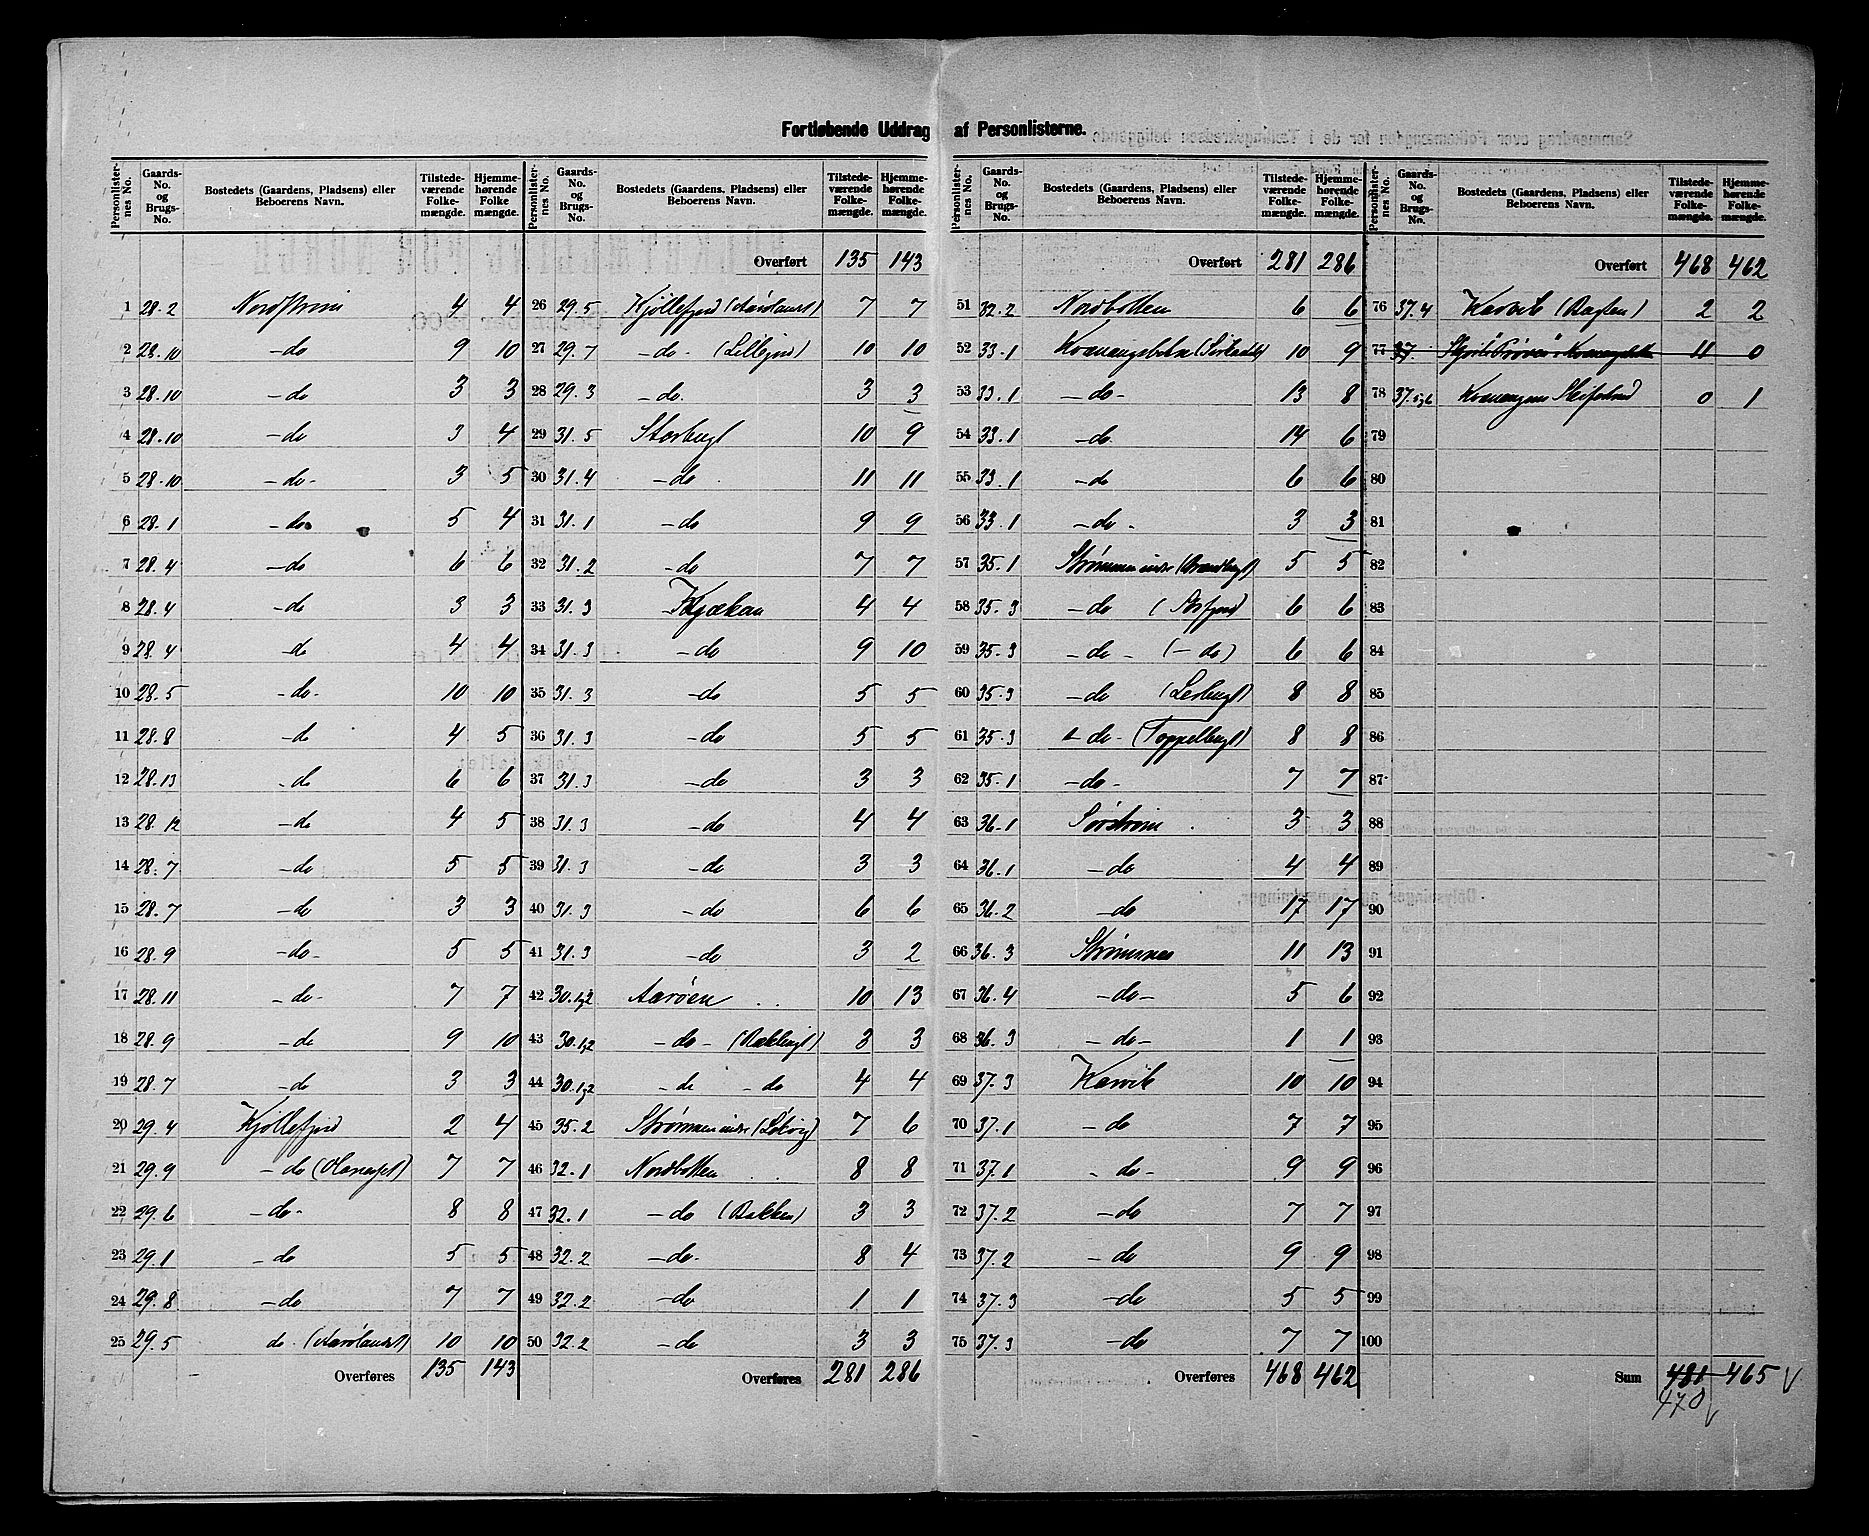 Fortløbende Uddrag af Personlisterne.
Personlister-nes No. | Gaards-No. og Brugs-No. | Bostedets (Gaardens, Pladsens) eller Beboerens Navn. | Tilstede-værende Folke-mængde. | Hjemme-hørende Folke mængde.
1 28.2 Nordstrøm 4 4
2 28.10 -do 9 10
3 28.10 -do 3 3
4 28.10 -do 3 4
5 28.10 -do- 3 5
6 28.1 -do 5 4
7 28.4 -do 6 6
8 28.4 -do 3 3
9 28.4 -do 4 4
10 28.5 -do- 10 10
11 28.8 -do 4 5
12 28.13 -do 6 6
13 28.12 -do 4 5
14 28.7 -do 5 5
15 28.7 -do 3 3
16 28.9 -do- 5 5
17 28.11 -do- 7 7
18 28.9 -do 9 10
19 28.7 -do 3 3
20 29.4 Kjøllefjord 2 4
21 29.9 -do 7 7
22 29.6 -do- 8 8
23 29.1 -do 5 5
24 29.8 -do 7 7
25 29.5 do. 10 10
Overføres 135 143
Personlister-nes No. | Gaards-No. og Brugs-No. | Bostedets (Gaardens, Pladsens) eller Beboerens Navn. | Tilstede-værende Folke-mængde. | Hjemme-hørende Folke-mængde.
Overført 135 143
26 29.5 Kjøllefjord 7 7
27 29.7 -do- (Lillefjord) 10 10
28 29.3 -do. 3 3
29 31.5 Storbugt 10 9
30 31.4 -do 11 11
31 31.1 -do 9 9
32 31.2 -do 7 7
33 31.3 Kjækan 4 4
34 31.3 -do 9 10
35 31.3 -do 5 5
36 31.3 -do 5 5
37 31.3 -do 3 3
38 31.3 -do 4 4
39 31.3 -do 3 3
40 31.3 -do 6 6
41 31.3 -do 3 2
42 30.1,2 Aarøen 10 13
43 30.1,2 -do- 3 3
44 30.1,2 -do -do 4 4
45 35.2 Strømmen indre 7 6
46 32.1 Nordbotten 8 8
47 32.1 -do (Bakken) 3 3
48 32.2 -do- 8 4
49 32.2 -do 1 1
50 32.2 -do 3 3
Overføres 281 286
Personlister-nes No. | Gaards-No. og Brugs-No. | Bostedets (Gaardens, Pladsens) eller Beboerens Navn. | Tilstede-værende Folke-mængde. | Hjemme-hørende Folke-mængde.
Overført 281 286
51 32.2 Nordbotten 6 6
52 33.1 10 9
53 33.1 -do- 13 8
54 33.1 -do 14 6
55 33.1 -do 6 6
56 33.1 -do- 3 3
57 35.1 Strømmen indre 5 5
58 35.3 -do 6 6
59 35.3 -do- (-do) 6 6
60 35.3 -do 8 8
61 35.3 -do- (Toppelbugt) 8 8
62 35.1 -do- 7 7
63 36.1 Sørstrøm 3 3
64 36.1 -do 4 4
65 36.2 -do 17 17
66 36.3 Strømsnes 11 13
67 36.4 -do- 5 6
68 36.3 -do- 1 1
69 37.3 Karvik 10 10
70 37.1 -do 7 7
71 37.1 -do- 9 9
72 37.2 -do 7 7
73 37.2 -do 9 9
74 37.3 -do 5 5
75 37.3 -do 7 7
Overføres 468 462
Personlister-nes No. | Gaards-No. og Brugs-No. | Bostedets (Gaardens, Pladsens) eller Beboerens Navn. | Tilstede-værende Folke-mængde. | Hjemme-hørende Folke-mængde.
Overført 468 462
76 37.4 Karvik 2 2
77 37 11 0
78 0 1
79
80
81
82
83
84
85
86
87
88
89
90
91
92
93
94
95
96
97
98
99
100
Sum 481 465
470